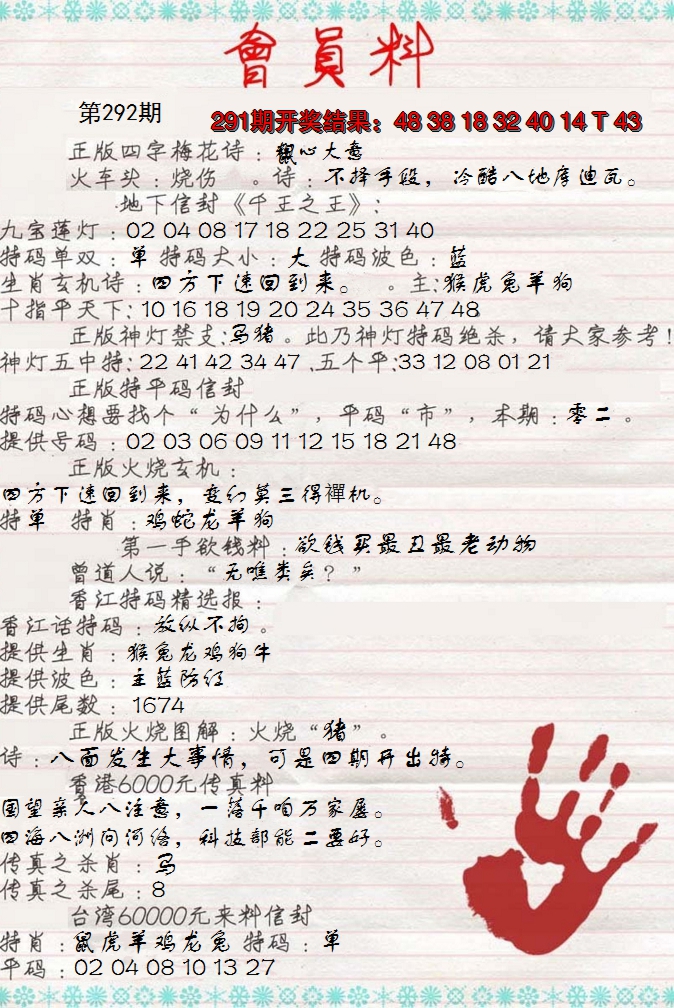 會員料
第292期
291期开奖结果：48 38 18 32 40 14 T 43
正版四字梅花诗：鼠心大意
火车头：烧伤 。诗：不择手段，冷酷八地库迪瓦。
地下信封《千王之王》：
九宝莲灯：02 04 08 17 18 22 25 31 40
特码单双：单 特码大小：大 特码波色：蓝
生肖玄机诗：四方下速回到来。 。主:猴虎兔羊狗
十指平天下:10 16 18 19 20 24 35 36 47 48
正版神灯禁支:马猪。此乃神灯特码绝杀，请大家参考!
神灯五中特:22 41 42 34 47 .五个平:33 12 08 01 21
正版特平码信封
特码心想要找个“为什么”，平码“市”，本期：零二。
提供号码：02 03 06 09 11 12 15 18 21 48
正版火烧玄机：
四方下速回到来，变幻莫三得禪机。
特单 特肖：鸡蛇龙羊狗
第一手欲钱料：欲钱买最丑最老动物
曾道人说：“无噍类矣？”
香江特码精选报：
香江话特码：放纵不拘。
提供生肖：猴兔龙鸡狗牛
提供波色：主蓝防红
提供尾数：1674
正版火烧图解：火烧“猪”。
诗：八面发生大事情，可是四期开出特。
香港6000元传真料
国望亲人八注意，一落千咱万家屡。
四海八洲问河络，科技部能二要好。
传真之杀肖：马
传真之杀尾：8
台湾60000元来料信封
特肖：鼠虎羊鸡龙兔 特码：单
平码：02 04 08 10 13 27